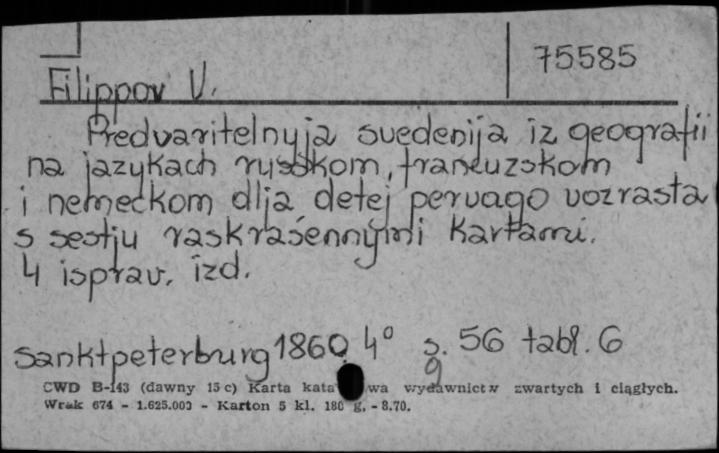 75585
Filippov V.
Predvaritelnyja svedenija iz geografii
na jazykach russkom, francuzskom
i nemeckom dlja detej pervago vozrasta
s sestju raskrašennymi kartami.
4 isprav. izd.
Sanktpeterburg 1860 4° s. 56 tabl. 6
CWD B-143 (dawny 15 c) Karta kata wa wydawnictw zwartych i ciągłych.
Wrak 674 - 1.625.000 - Karton 5 kl. 180 g. - 8.70.